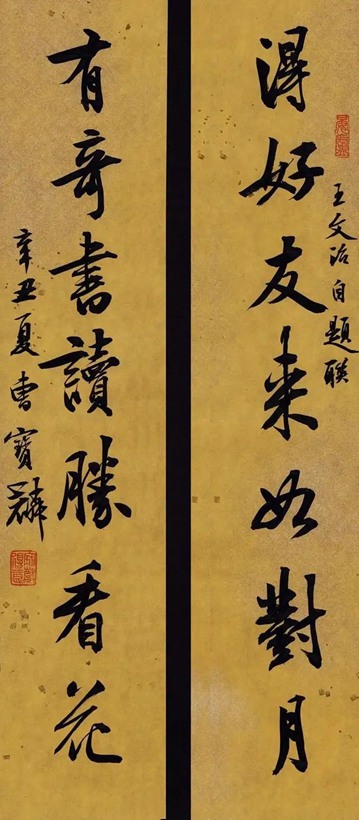 王文治自題联
得好友来如對月
有奇書讀勝看花
辛丑夏曹寶麟